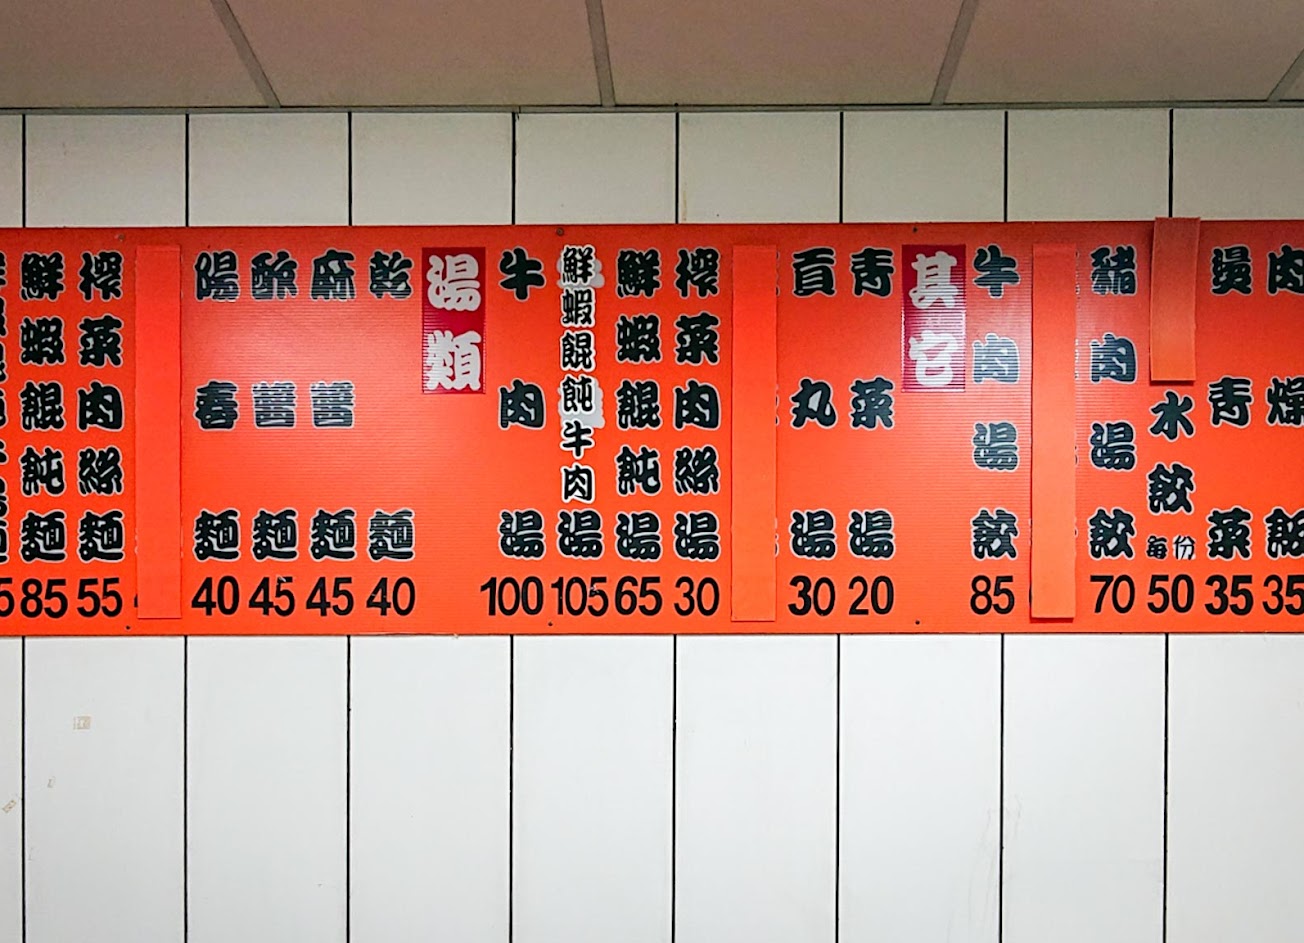 鮮蝦餛飩麵 85
榨菜肉絲麵 55
陽春麵 40
酢醬麵 45
麻醬麵 45
乾麵 40
湯類
牛肉湯 100
鮮蝦餛飩牛肉湯 105
鮮蝦餛飩湯 65
榨菜肉絲湯 30
貢丸湯 30
青菜湯 20
其它
牛肉湯餃 85
豬肉湯餃 70
水餃每份 50
燙青菜 35
肉燥飯 35